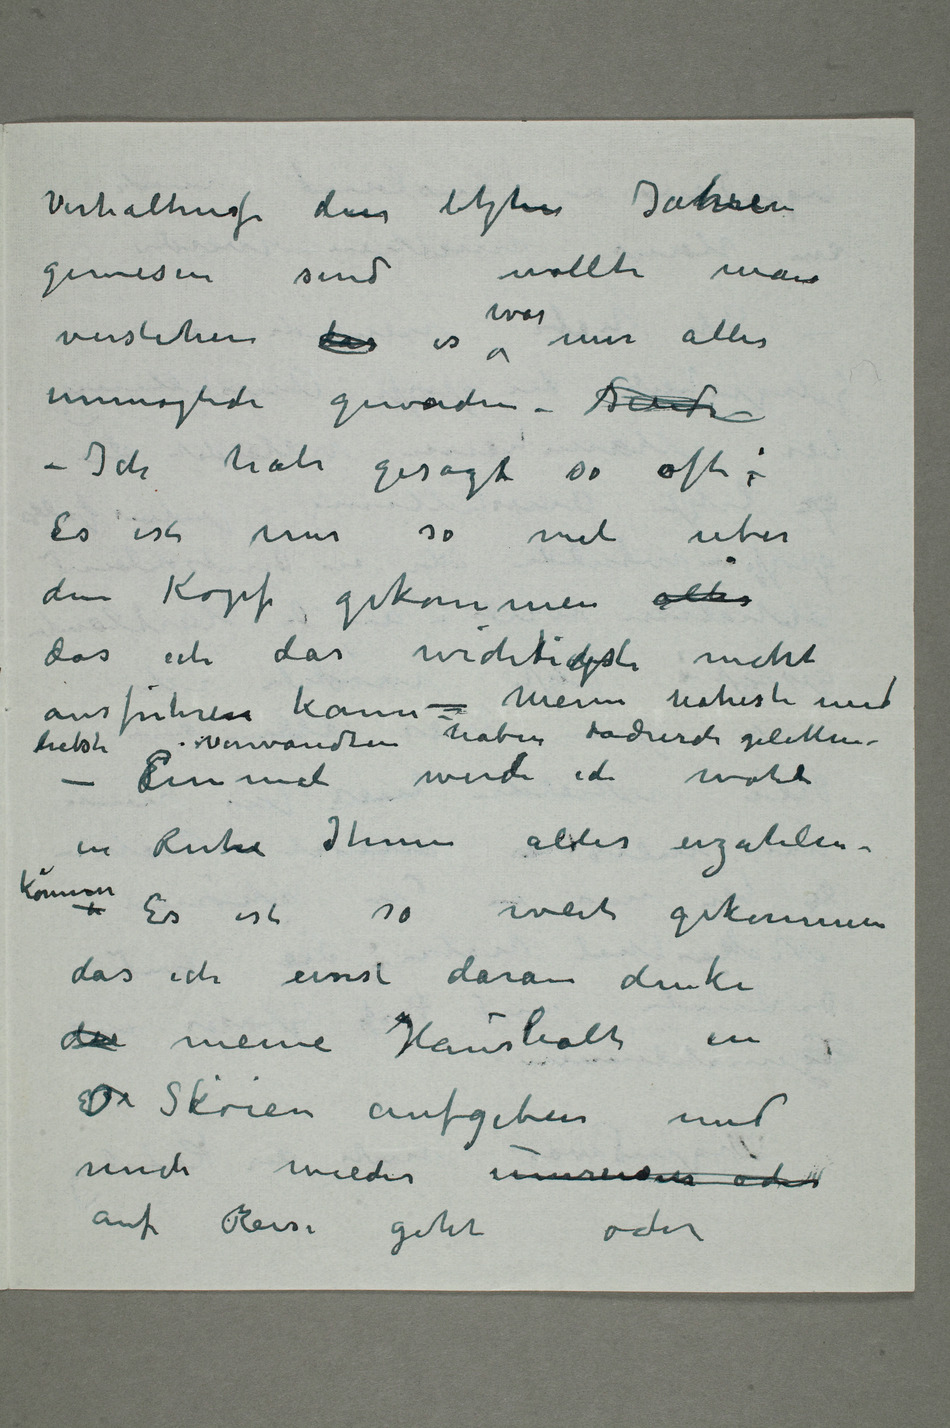 Verhältnisse den letzten Jahren
gewesen sind wollte man
verstehen das es war mir alles
unmöglich geworden –
– Ich habe gesagt so oft:
Es ist mir so viel über
den Kopf gekommen alles
das ich das wichtigste nicht
ausführen kann – Meine naheste und
liebste Verwandten haben dadurch gelitten –
– Einmal werde ich wohl
in Ruhe Ihnen alles erzahlen –
können
– Es ist so weit gekommen
das ich ernst daran denke
die meine Haushalt in
Skøien aufgeben und
mich wieder umreisen oder
auf Reise geht oder